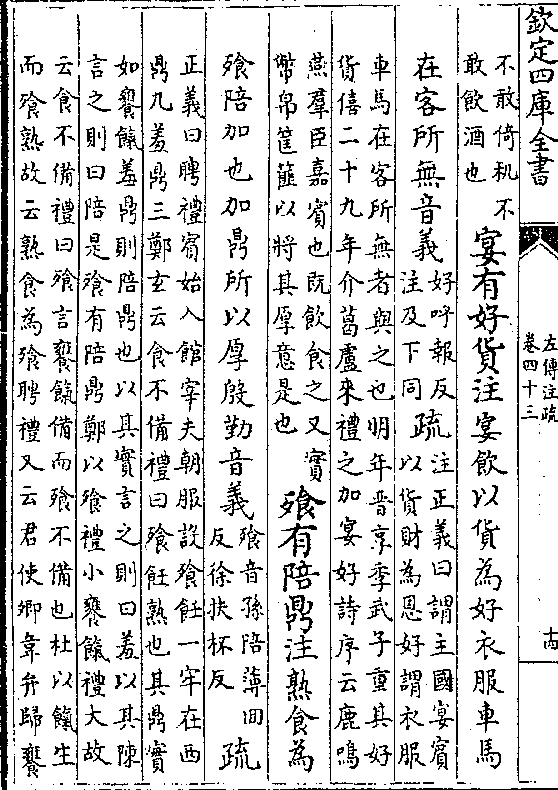 欽定四庫全書
左傳注疏
卷四十三
十四
不敢倚机不
敢飲酒也
宴有好貨注宴飲以貨為好衣服車馬
在客所無音義
好呼報反
注及下同
疏
注正義曰謂主國宴賓
以貨財為恩好謂衣服
車馬在客所無者與之也明年晉享季武子重其好
貨僖二十九年介葛盧來禮之加宴好詩序云鹿鳴
燕羣臣嘉賓也既飲食之又實
幣帛筐篚以將其厚意是也
飱有陪鼎注熟食為
飱陪加也加鼎所以厚殷勤音義
飱音孫陪薄回
反徐扶杯反
疏
正義曰聘禮賓始入館宰夫朝服設飱飪一牢在西
鼎九羞鼎三鄭玄云食不備禮曰飱飪熟也其鼎實
如饔餼羞鼎則陪鼎也以其實言之則曰羞以其陳
言之則曰陪是飱有陪鼎鄭以飱禮小饔餼禮大故
云食不備禮曰飱言饔餼備而飱不備也杜以餼生
而飱熟故云熟食為飱聘禮又云君使卿韋弁歸饔